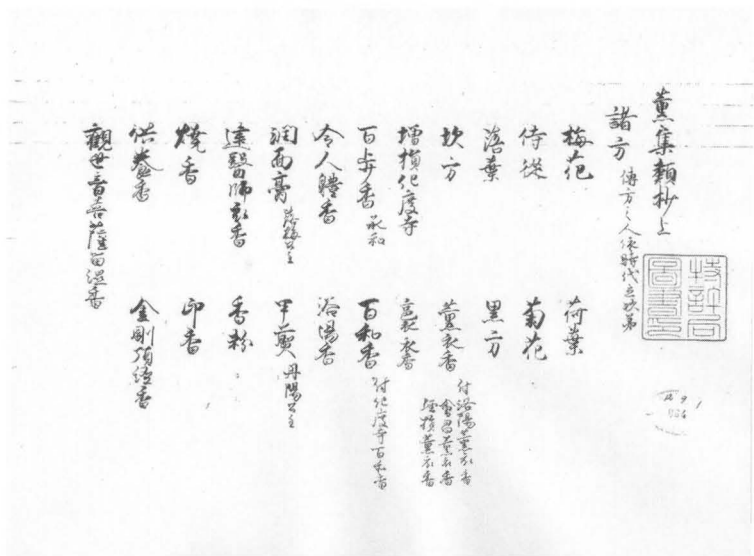 薫集類抄上
諸方 傳方之人依時代立次第
梅花 荷葉
侍從 菊花
落葉 黒方
坎方 薫衣香 付洛陽薫衣香
會昌薫衣香
増損薫衣香
増損化度寺 裛衣香
百歩香 承和 百和香 付化度寺百和香
令人體香 浴湯香
潤面膏 甲煎 丹陽公主
香粉
燒香 印香
供養香 金剛頂經香
觀世音菩薩香
特許局